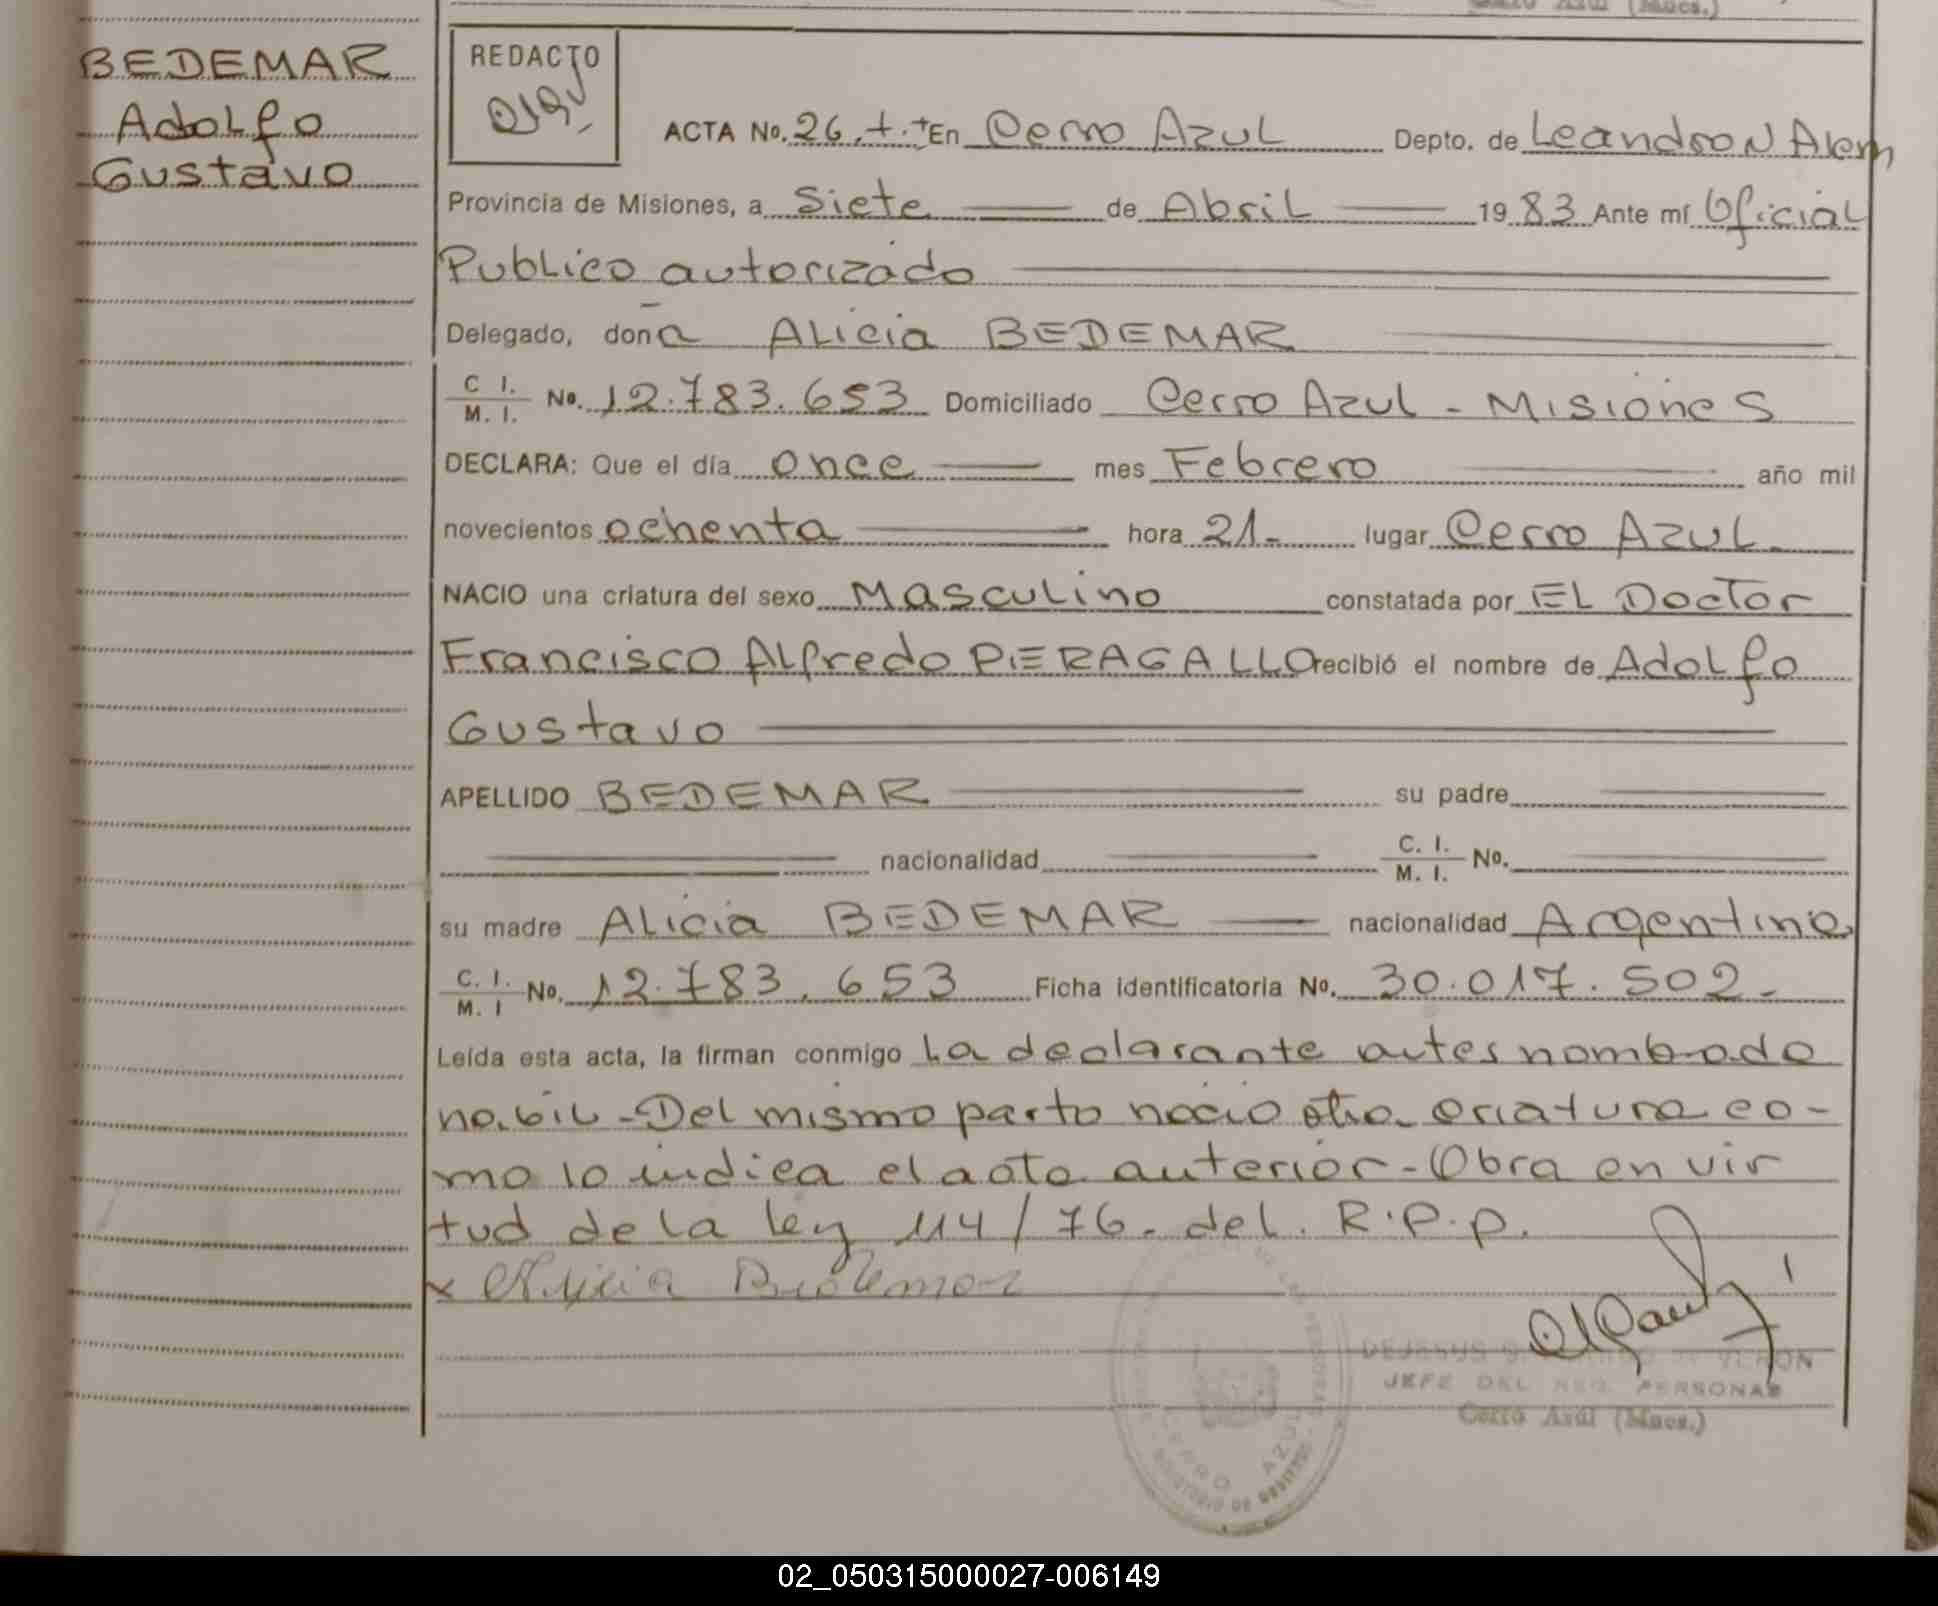 Cerro Azul (Mnes.)
BEDEMAR
Adolfo
Gustavo
REDACTO
ACTA No. 26.+.+ En Cerro Azul Depto. de Leandro N Alem
Provincia de Misiones, a siete de Abril 1983 Ante mí Oficial
Publico autorizado
Delegado, doña Alicia BEDEMAR
C I. / M. I. No. 12.783.653 Domiciliado Cerro Azul - Misiones
DECLARA: Que el día once mes Febrero año mil
novecientos ochenta hora 21- lugar Cerro Azul-
NACIO una criatura del sexo Masculino constatada por EL Doctor
Francisco Alfredo PIERAGALLO recibió el nombre de Adolfo
Gustavo
APELLIDO BEDEMAR su padre
nacionalidad C. I. / M. I. No.
su madre Alicia BEDEMAR nacionalidad Argentina
C. I. / M. I No. 12.783.653 Ficha identificatoria No. 30.017.502-
Leída esta acta, la firman conmigo la declarante antes nombrada
hábil - Del mismo parto nació otra criatura co-
mo lo indica el acta anterior - Obra en vir
tud de la ley 114/76. del. R.P.P.
x Alicia Bedemar
DEJESUS VERON
JEFE DEL REG. PERSONAS
Cerro Azúl (Mnes.)
CERRO AZUL
02_050315000027-006149